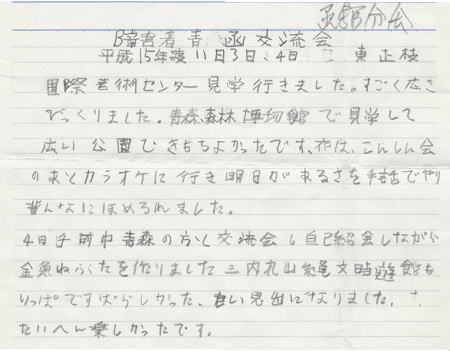 函館分会
障害者青函交流会
平成15年渡11月3日、4日 東正枝
国際芸術センター見学行きました。すごく広さ
びっくりました。青森森林博物館で見学して
広い公園できもちよかったです、夜は、こんしん会
のあとカラオケに行き明日があるさを手話でやり
皆んなにほめられました。
4日午前中青森の方と交流会し自己紹介しながら
金魚ねぶたを作りました三内丸山縄文時遊館も
りっぱですばらしかった、良い思出になりました。
たいへん楽しかったです。